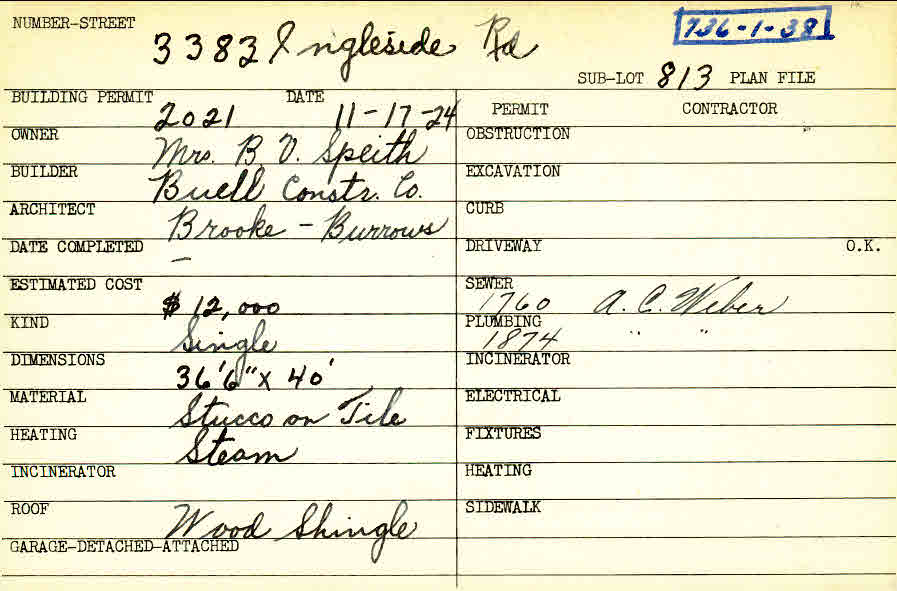 NUMBER-STREET 3383 Ingleside Rd
736-1-38
SUB-LOT 813 PLAN FILE
BUILDING PERMIT 2021 DATE 11-17-24
OWNER Mrs. B. V. Speith
BUILDER Buell Constr. Co.
ARCHITECT Brooke - Burrows
DATE COMPLETED -
ESTIMATED COST $ 12,000
KIND Single
DIMENSIONS 36'6" x 40'
MATERIAL Stucco on Tile
HEATING Steam
INCINERATOR
ROOF Wood Shingle
GARAGE-DETACHED-ATTACHED
PERMIT CONTRACTOR
OBSTRUCTION
EXCAVATION
CURB
DRIVEWAY O.K.
SEWER 1760 A. C. Weber
PLUMBING 1874 " "
INCINERATOR
ELECTRICAL
FIXTURES
HEATING
SIDEWALK